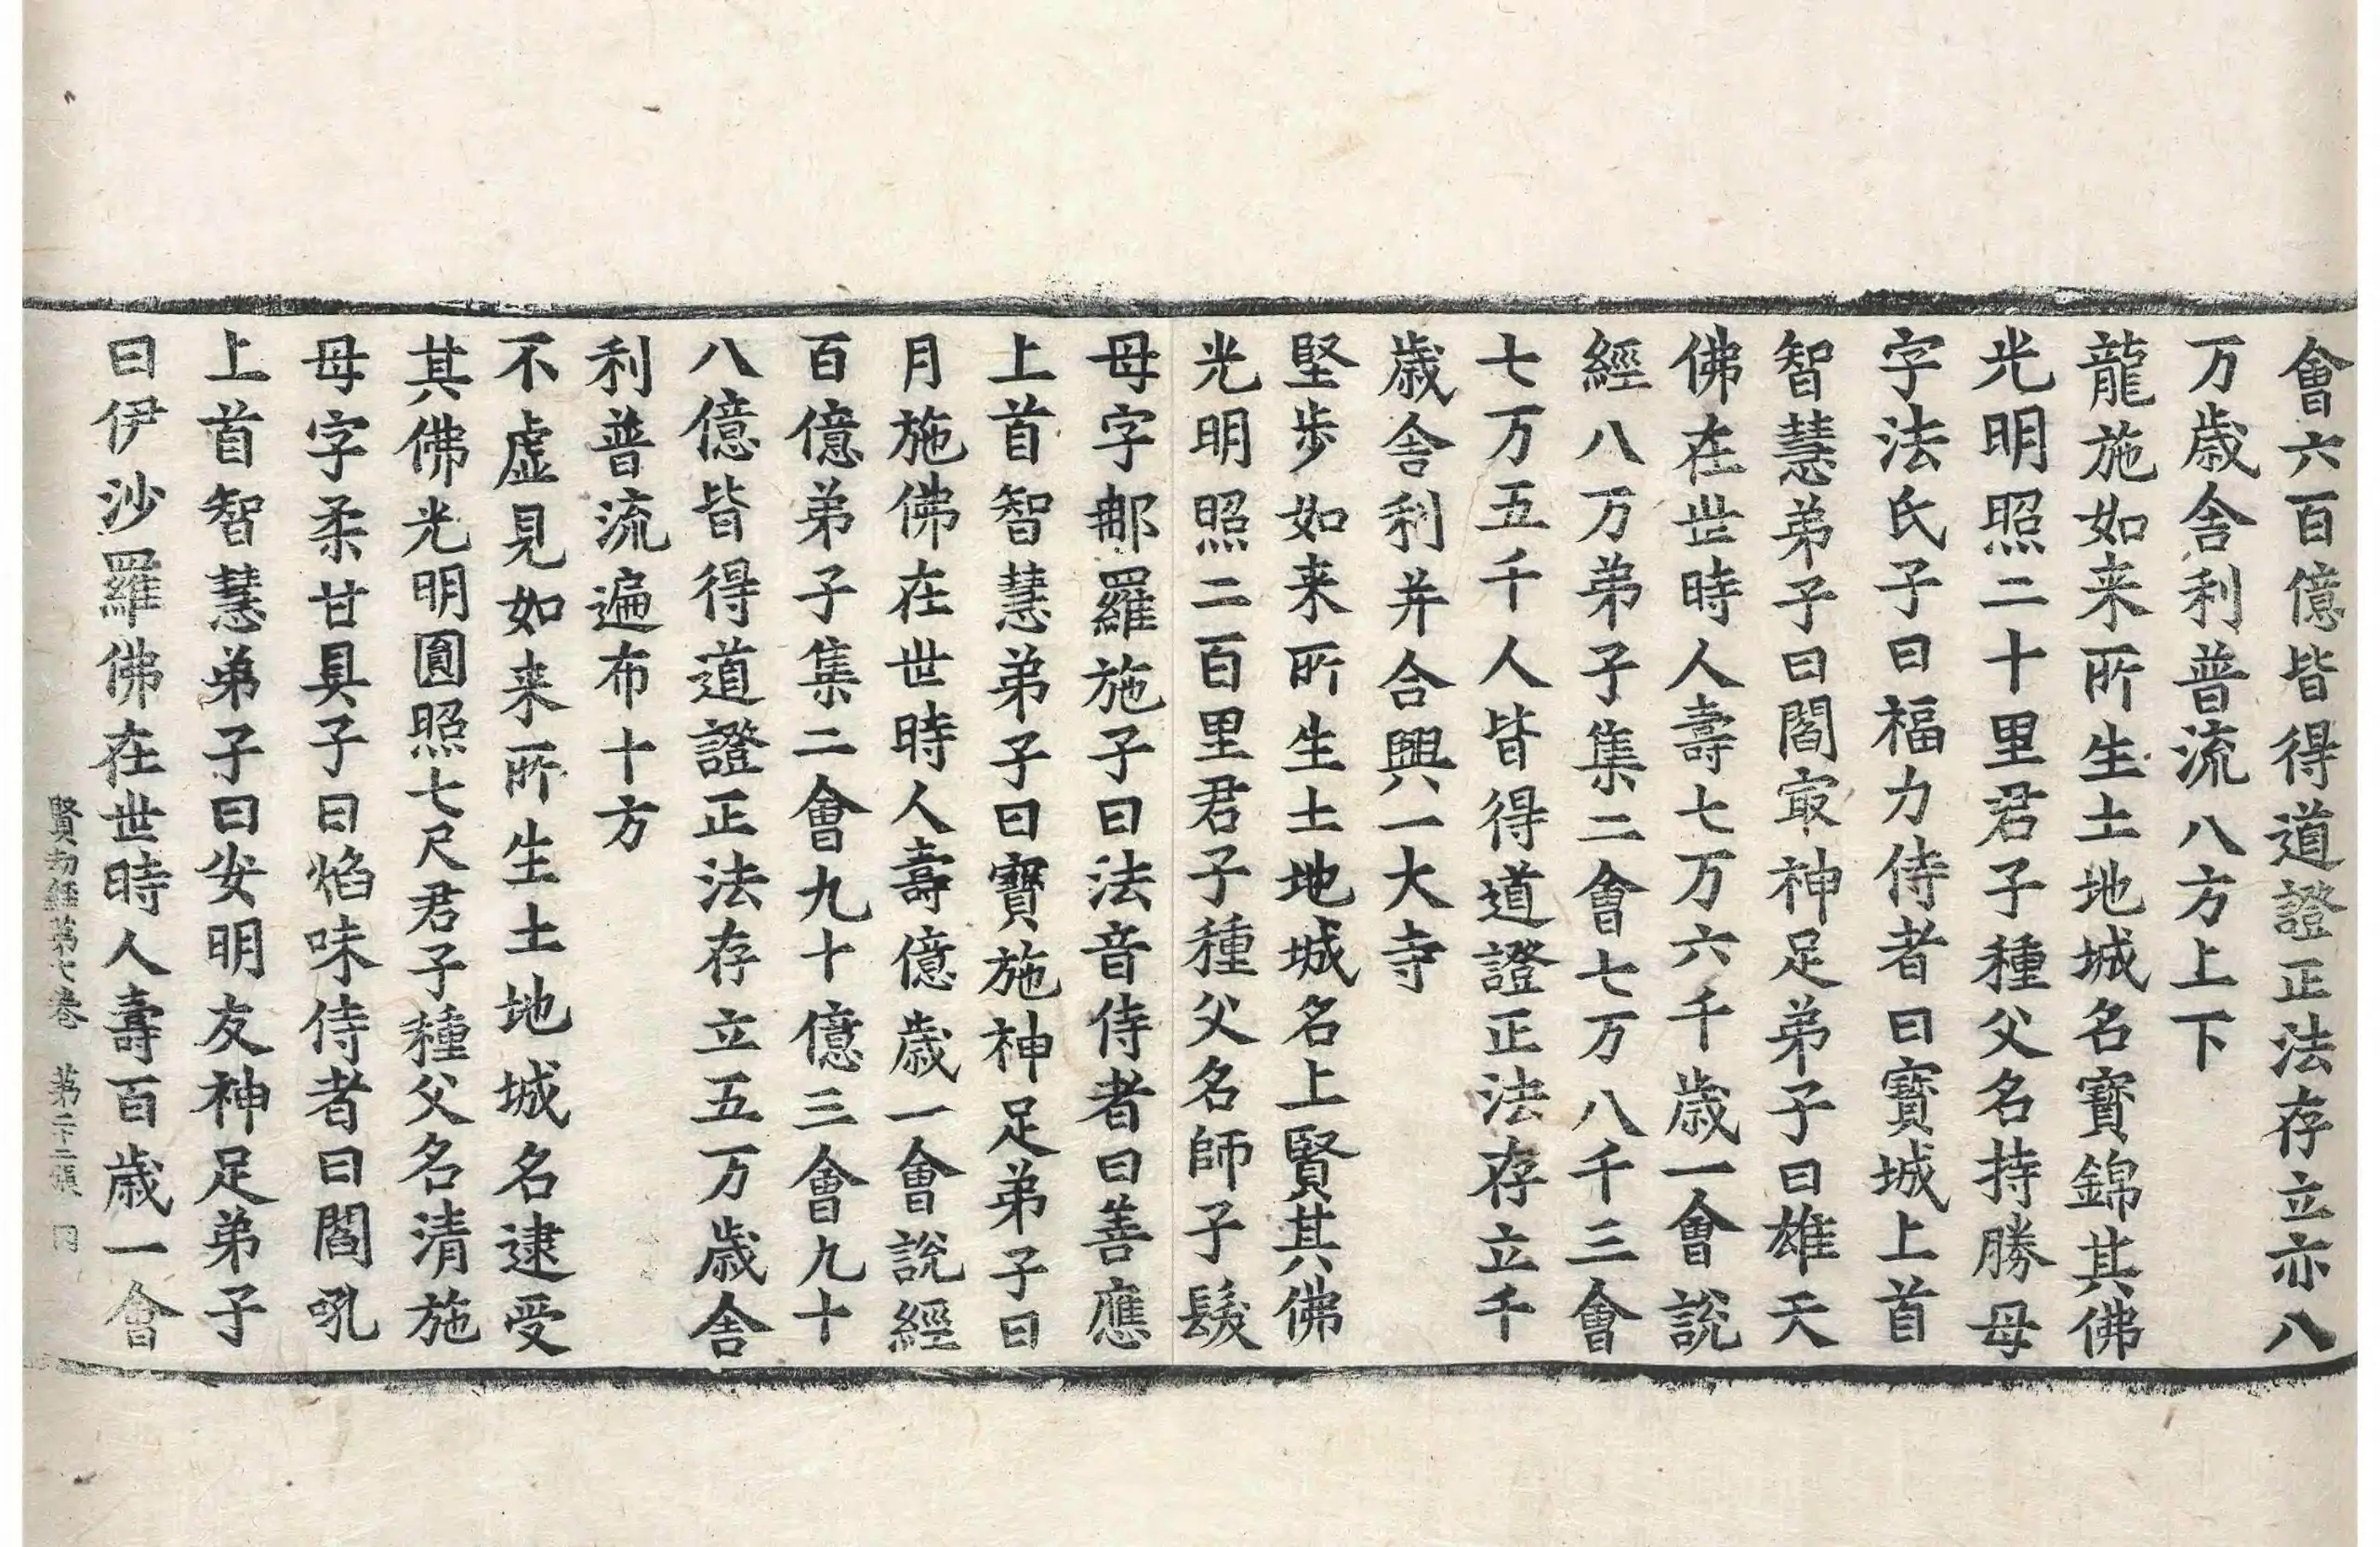 會六百億皆得道證正法存立亦八
万歳舎利普流八方上下
龍施如来所生土地城名寳錦其佛
光明照二十里君子種父名持勝母
字法氏子曰福力侍者曰寳城上首
智慧弟子曰閻㝡神足弟子曰雄天
佛在世時人壽七万六千歳一會說
經八万弟子集二會七万八千三會
七万五千人皆得道證正法存立千
歳舎利并合興一大寺
堅歩如来所生土地城名上賢其佛
光明照二百里君子種父名師子髮
母字郍羅施子曰法音侍者曰善應
上首智慧弟子曰寳施神足弟子曰
月施佛在世時人壽億歳一會說經
百億弟子集二會九十億三會九十
八億皆得道證正法存立五万歳舎
利普流遍布十方
不虚見如来所生土地城名逮受
其佛光明圓照七尺君子種父名清施
母字柔甘具子曰焰味侍者曰閻吼
上首智慧弟子曰安明友神足弟子
曰伊沙羅佛在世時人壽百歳一會
賢劫經第七卷 第二十二張 同